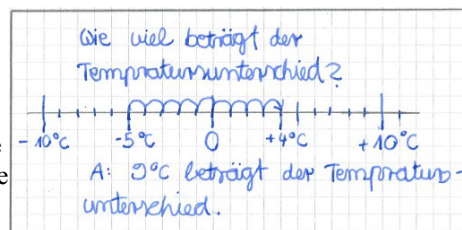 Wie viel beträgt der
Tempratursunterschied?
-10°C -5°C 0 +4°C +10°C
e
e
A: 9°C beträgt der Tempraturs-
unterschied.